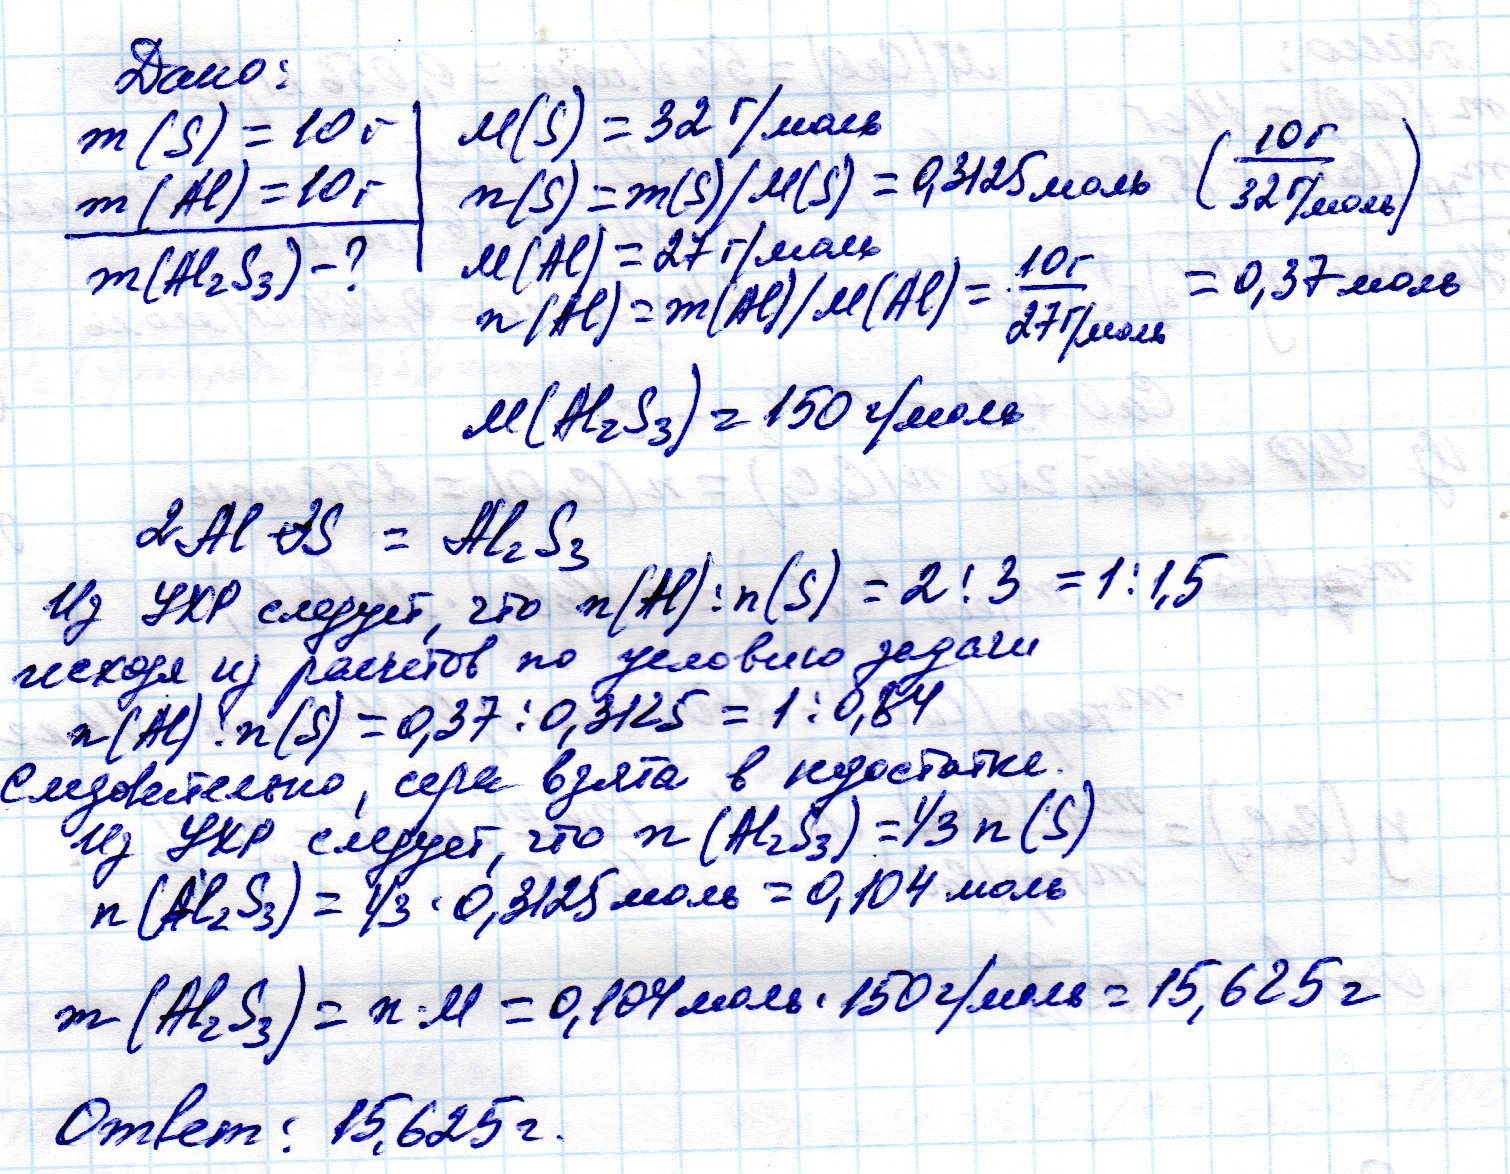 Дано:
m(S) = 10 г
m(Al) = 10 г
m(Al₂S₃) - ?
M(S) = 32 г/моль
n(S) = m(S)/M(S) = 0,3125 моль (10 г / 32 г/моль)
M(Al) = 27 г/моль
n(Al) = m(Al)/M(Al) = 10 г / 27 г/моль = 0,37 моль
M(Al₂S₃) = 150 г/моль
2Al + 3S = Al₂S₃
Из УХР следует, что n(Al) : n(S) = 2 : 3 = 1 : 1,5
исходя из расчетов по условию задачи
n(Al) : n(S) = 0,37 : 0,3125 = 1 : 0,84
Следовательно, сера взята в недостатке.
Из УХР следует, что n(Al₂S₃) = 1/3 n(S)
n(Al₂S₃) = 1/3 · 0,3125 моль = 0,104 моль
m(Al₂S₃) = n·M = 0,104 моль · 150 г/моль = 15,625 г
Ответ: 15,625 г.